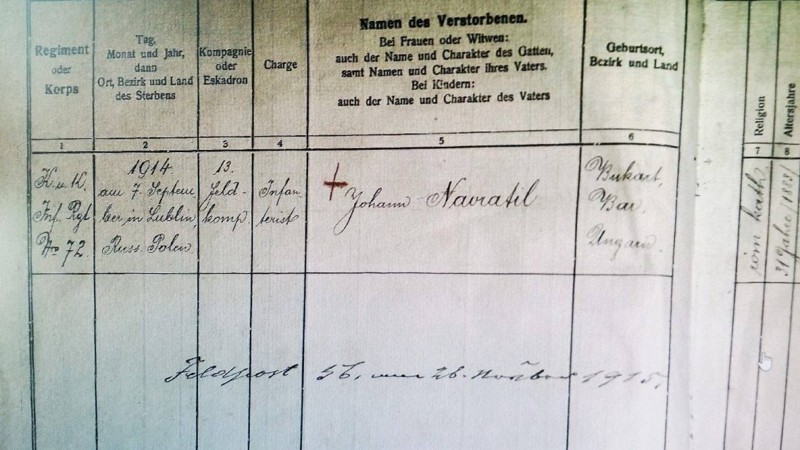 Regiment
oder
Korps
Tag,
Monat und Jahr,
dann
Ort, Bezirk und Land
des Sterbens
Kompagnie
oder
Eskadron
Charge
Namen des Verstorbenen.
Bei Frauen oder Witwen:
auch der Name und Charakter des Gatten,
samt Namen und Charakter ihres Vaters.
Bei Kindern:
auch der Name und Charakter des Vaters
Geburtsort,
Bezirk und Land
Religion
Altersjahre
1
2
3
4
5
6
7
8
K. u. K.
Inf. Rgt.
Nro 72.
1914
am 7. Septem
ber in Lublin,
Russ. Polen
13.
Feld-
komp.
Infan
terist
Johann Navratil
Bukart,
Bar,
Ungarn
röm. kath.
31 Jahre (1883)
Feldpost 56, am 26. November 1915.